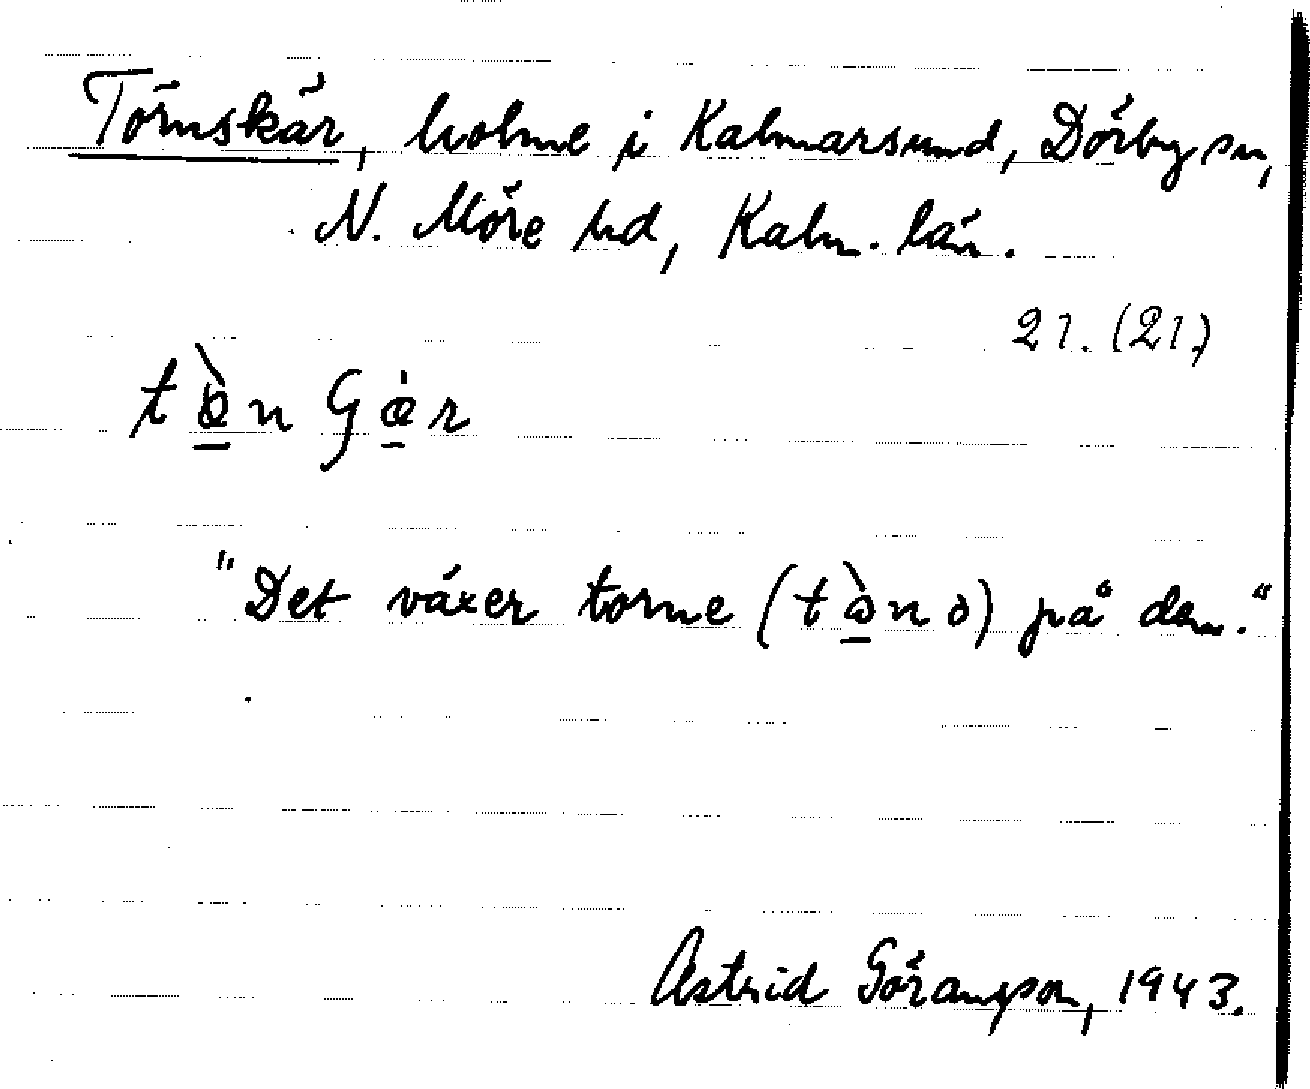 Törnskär, holme i Kalmarsund, Dörby sn,
N. Möre hd, Kalm. län.
21. (21.)
"Det växer törne (        ) på den."
Astrid Göransson, 1943.